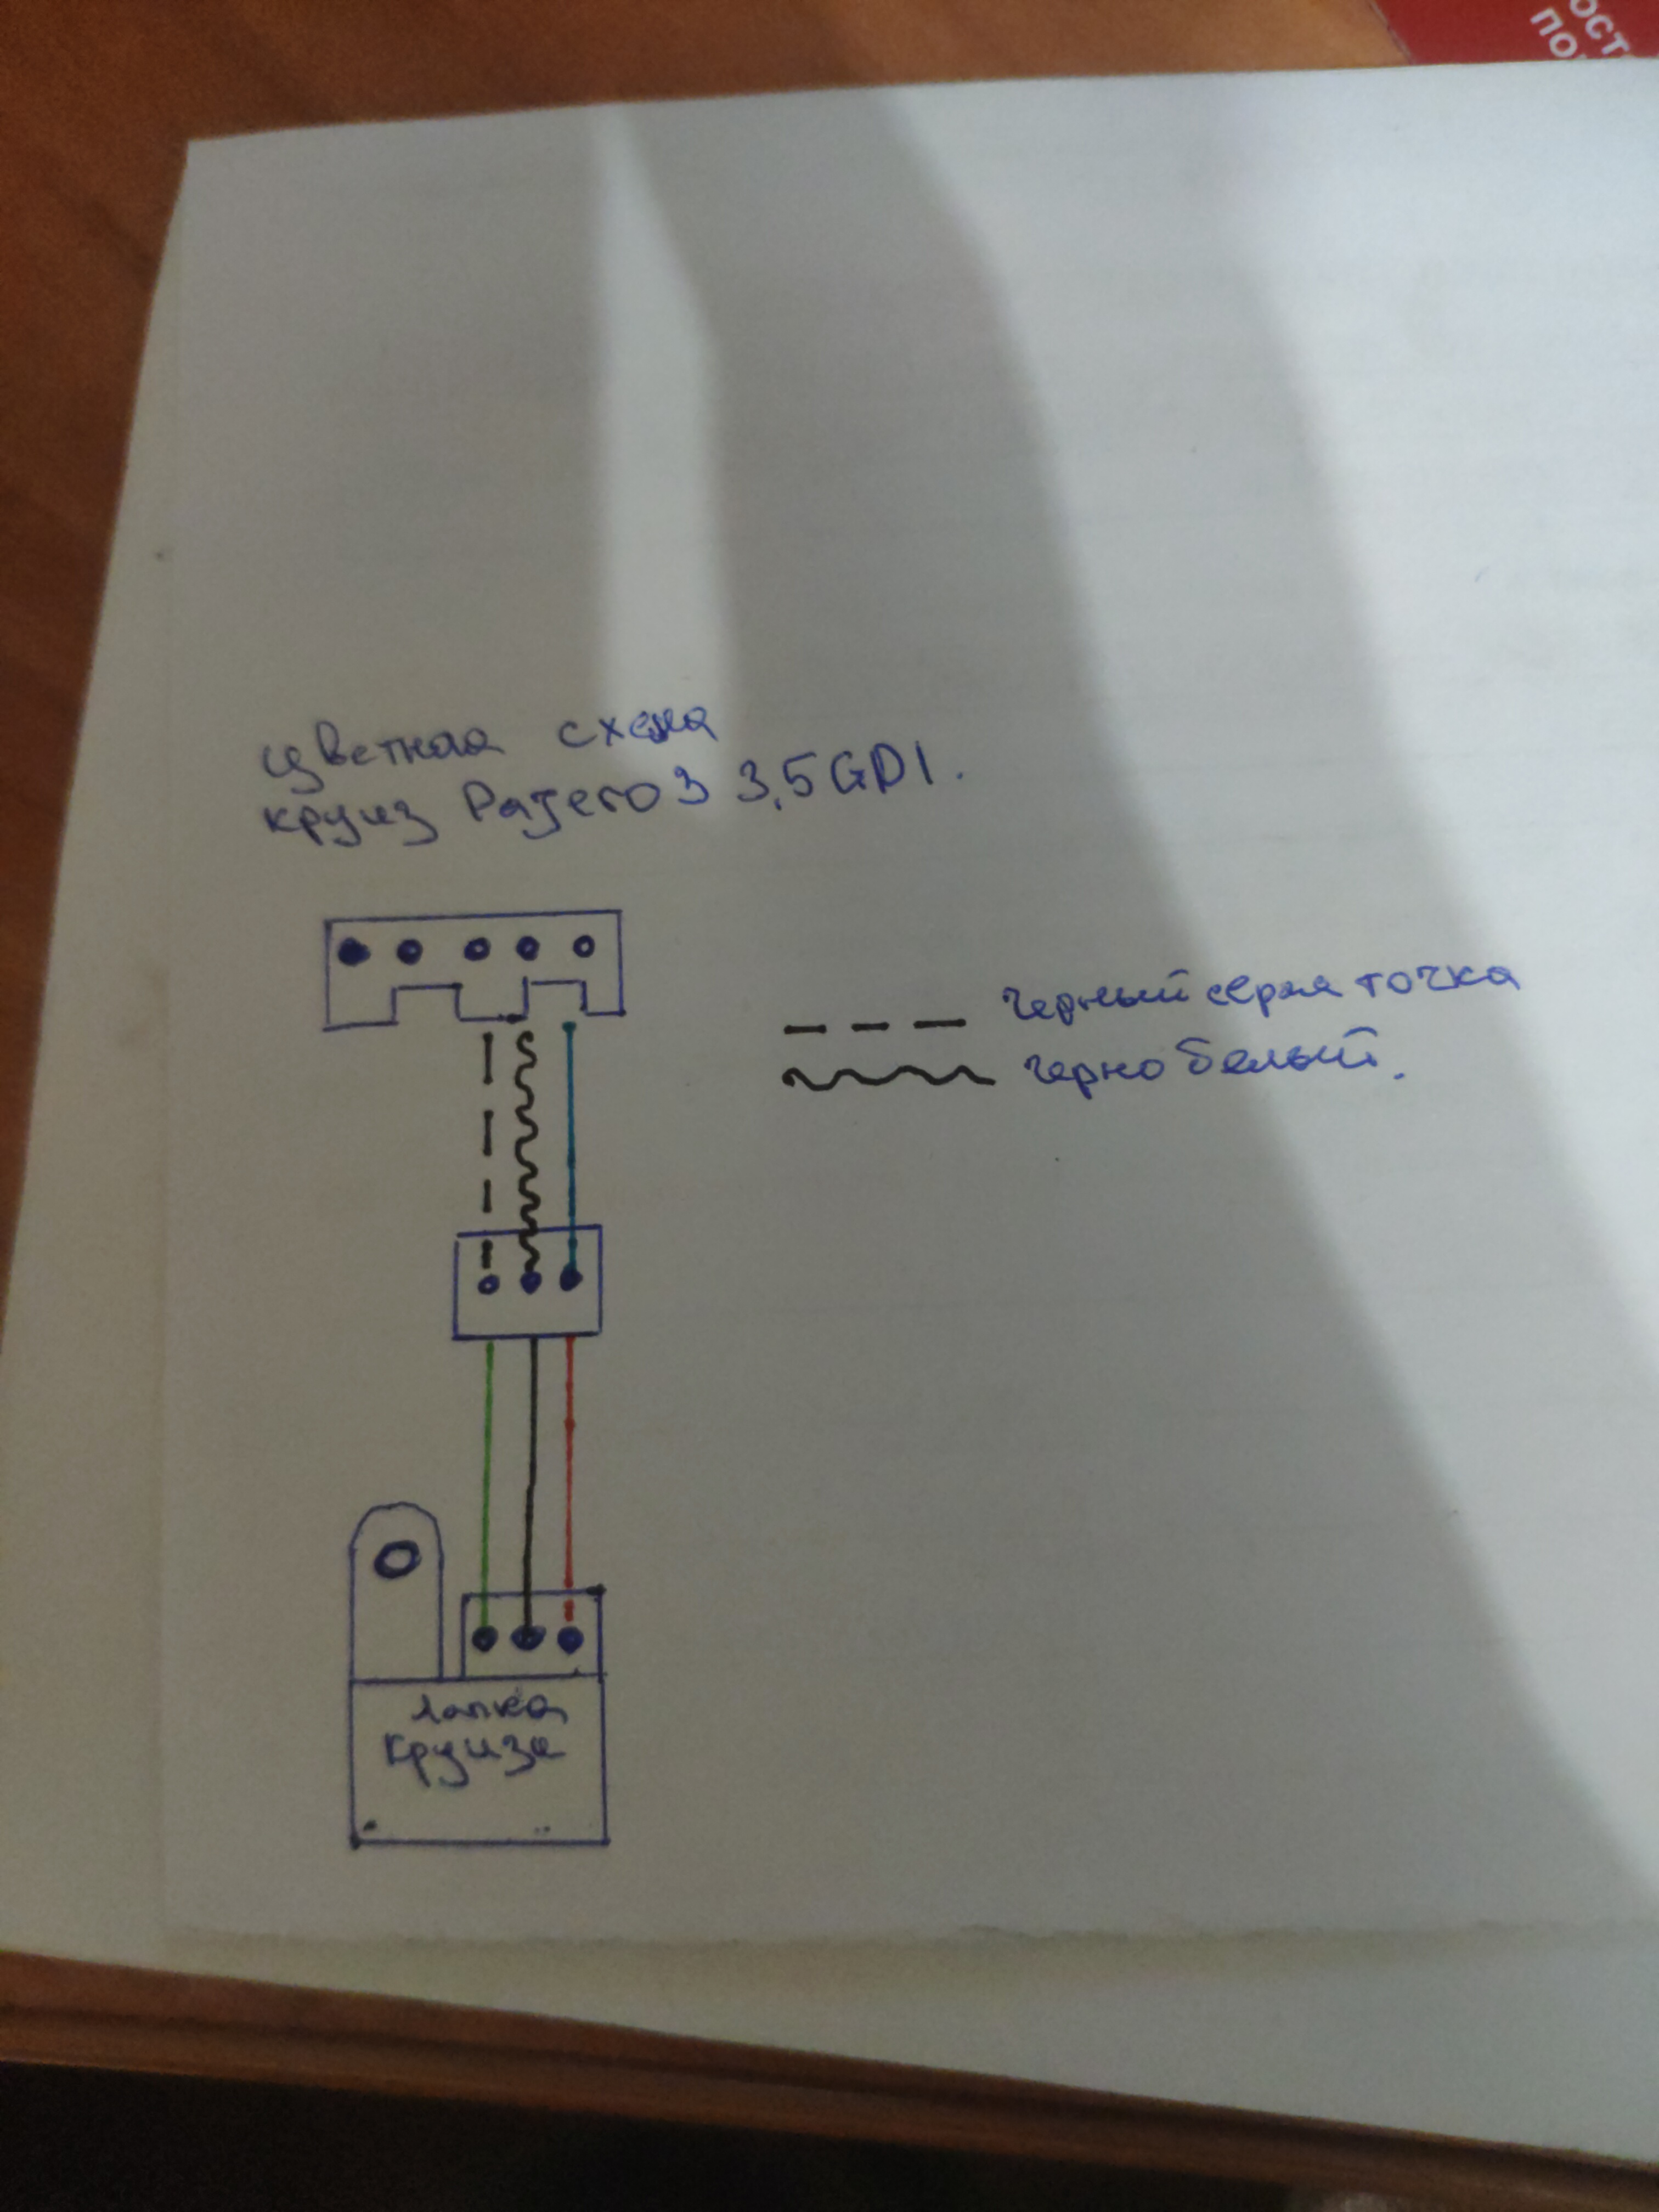 ост
по
цветная схема
круиз Pajero 3 3,5 GDI.
черный серая точка
черно белый.
лапка
круиза